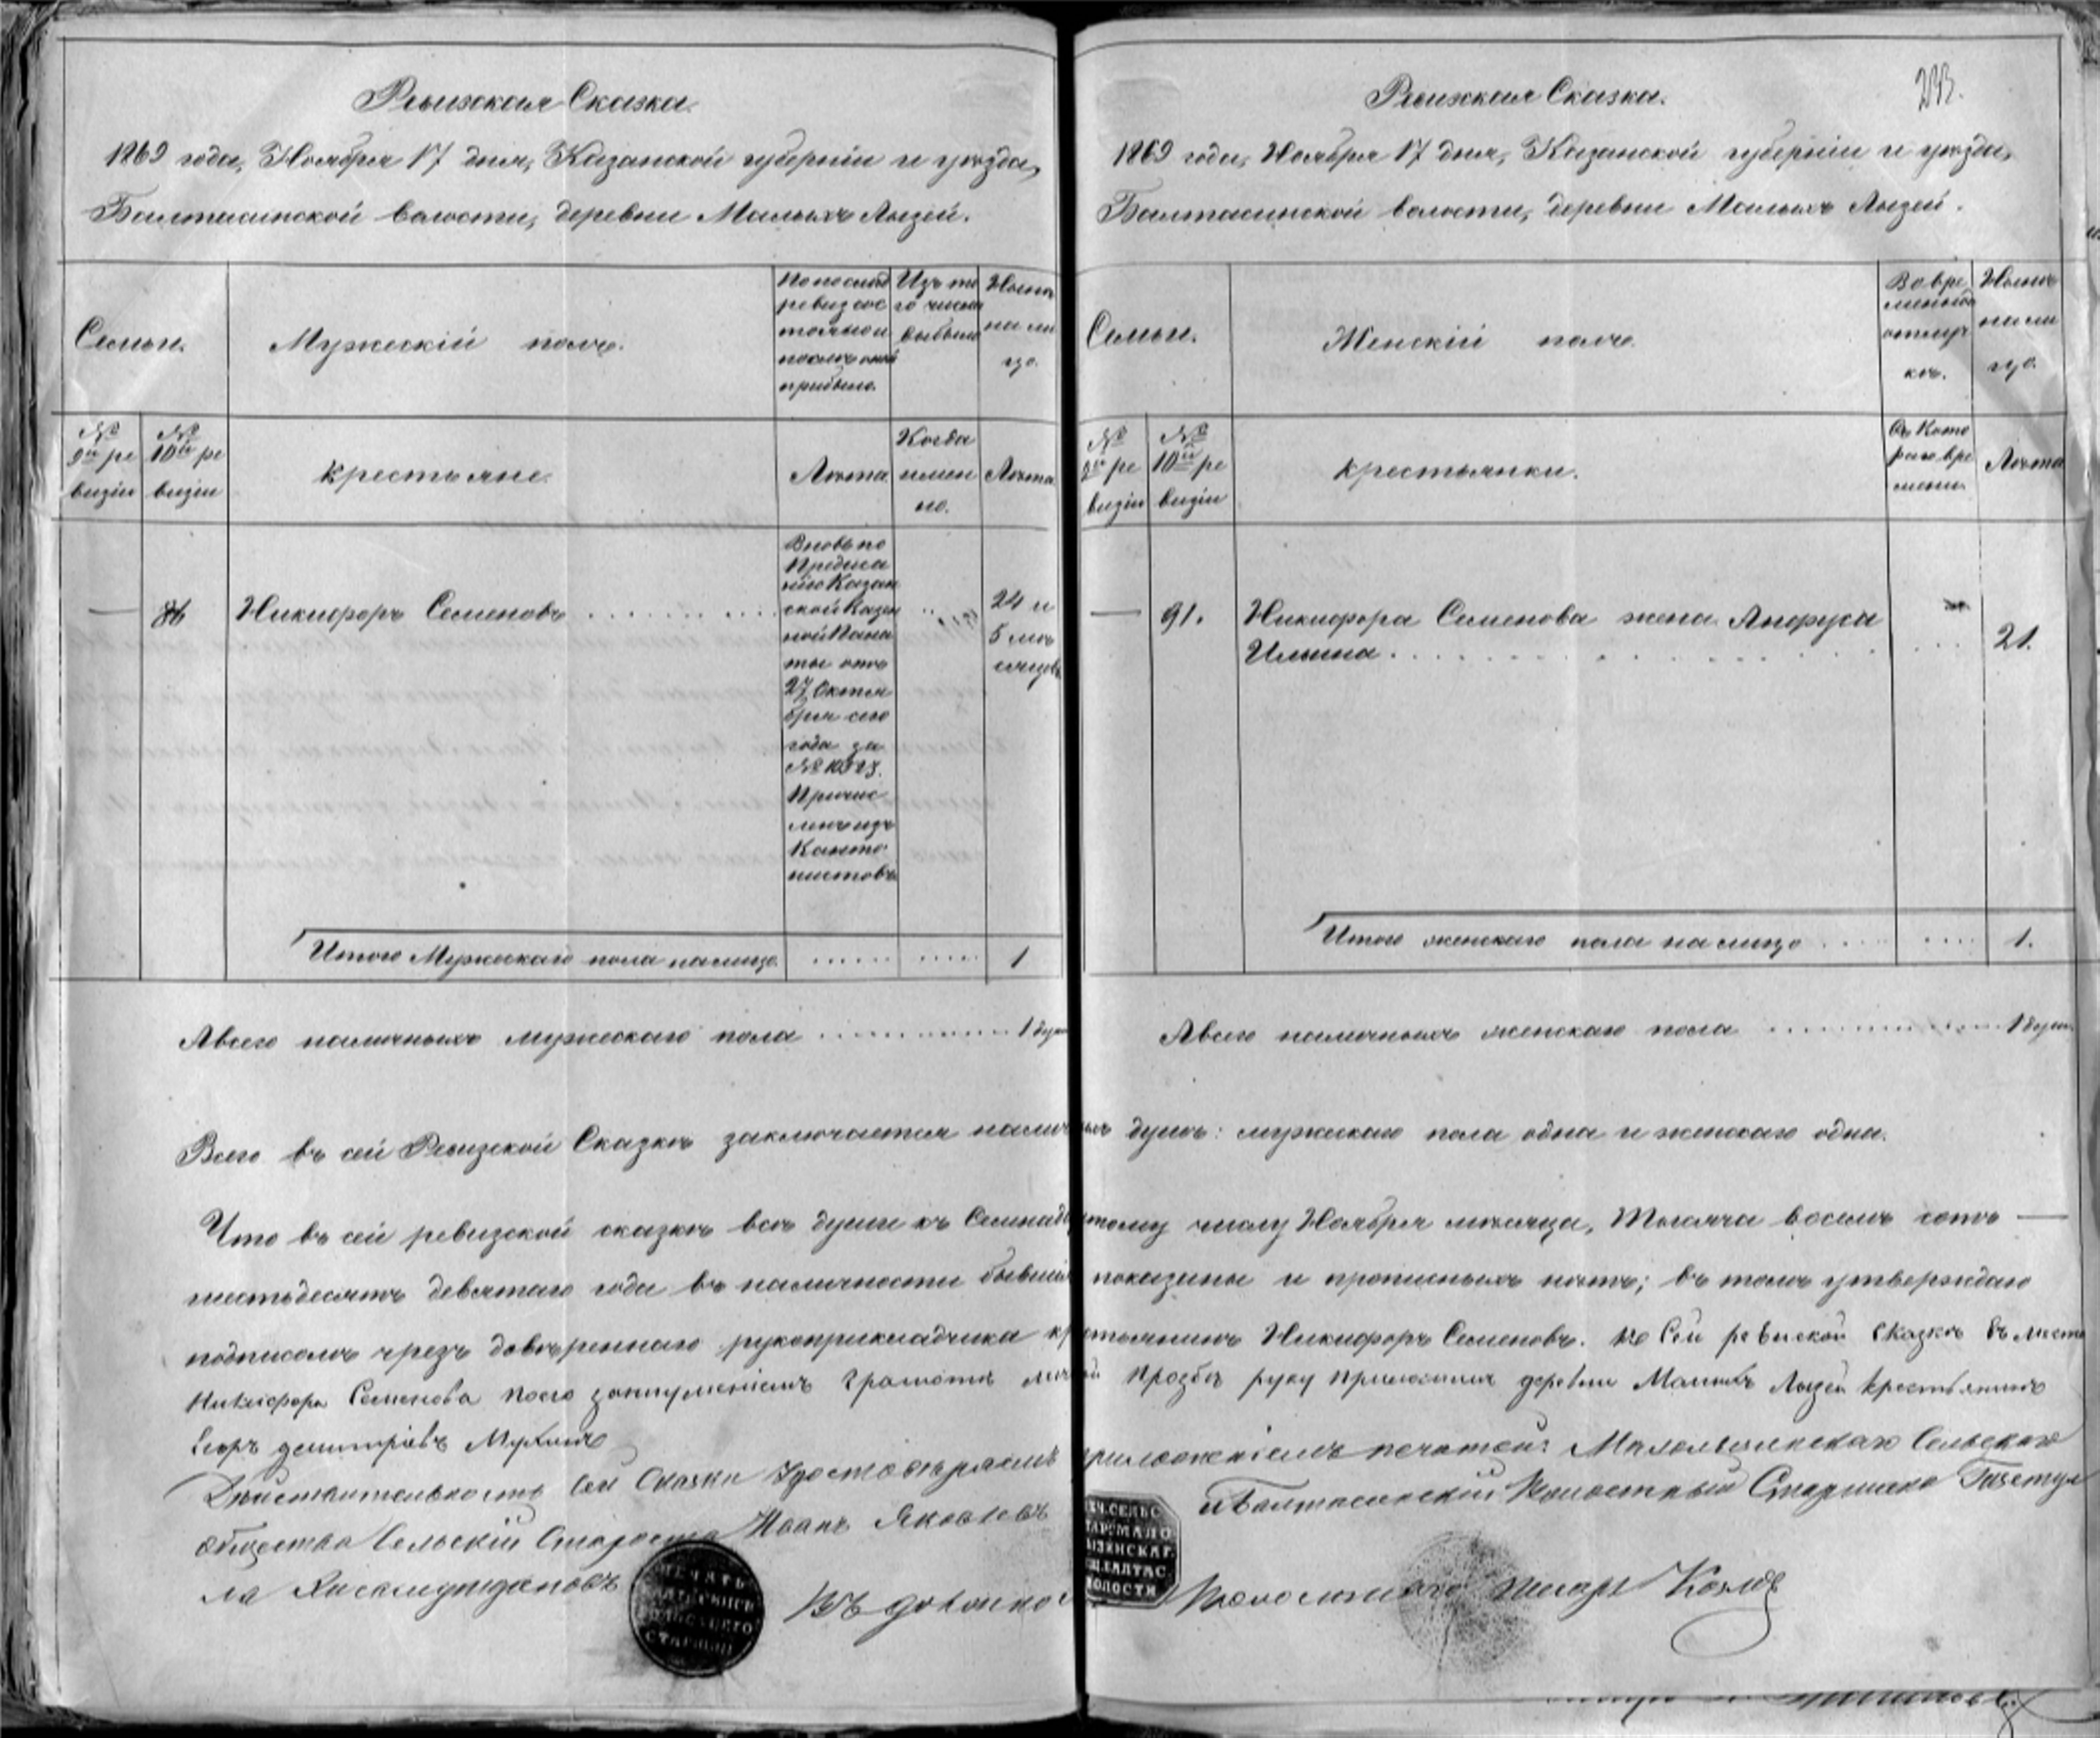 Ревизская Сказка.
1869 года, Ноября 17 дня, Казанской губерніи и уѣзда,
Балтасинской волости, деревни Малыхъ Лызей.
Семьи.
Мужескій полъ.
По послѣд
ревиз сос
тояло и
послѣ оной
прибыло.
Изъ то
го числа
выбыло
Нынѣ
на ли
цо.
№
9ой ре
визіи
№
10ой ре
визіи
крестьяне.
Лѣта
Когда
имен
но.
Лѣта
—
Никифоръ Семеновъ
Вновь по
Предписа
нію Казан
ской Казен
ной Пала
ты отъ
27 Октя
бря сего
года за
Причис
ленъ изъ
Канто
нистовъ
24 и
5 мѣ
сяцовъ
Итого Мужескаго пола налицо
1
А всего наличныхъ мужескаго пола 1 душа
Ревизская Сказка.
1869 года, Ноября 17 дня, Казанской губерніи и уѣзда,
Балтасинской волости, деревни Малыхъ Лызей.
Семьи.
Женскій полъ.
Во вре
менной
отлуч
кѣ.
Нынѣ
на ли
цо.
№
9ой ре
визіи
№
10ой ре
визіи
крестьянки.
Съ кото
раго вре
мени
Лѣта
—
91.
Никифора Семенова жена Апфуса
Ильина
21.
Итого женскаго пола налицо
1.
А всего наличныхъ женскаго пола 1 душа
Всего въ сей Ревизской Сказкѣ заключается наличныхъ душъ: мужескаго пола одна и женскаго одна.
Что въ сей ревизской сказкѣ всѣ души къ Семнадцатому числу Ноября мѣсяца, Тысяча восемь сотъ —
шестьдесятъ девятаго года въ наличности бывшія показаны и прописныхъ нѣтъ; въ томъ утверждаю
подписомъ чрезъ довѣреннаго рукоприкладчика крестьянинъ Никифоръ Семеновъ. Къ Сей ревиской Сказкѣ въмѣсто
Никифора Семенова по его грамотѣ личной прозбѣ руку приложилъ деревни Малыхъ Лызей крестьянинъ
Егоръ Дмитріевъ Мухинъ
Дѣйствительность сей Сказки удостовѣряемъ приложеніемъ печатей: Малолызинскаго Сельскаго
общества Сельскій Староста Иванъ Яковлевъ и Балтасинскій Волостный Старшина
ла
Волостной писарь Козловъ
ПЕЧАТЬ
СТАРШИНЫ
ПЕЧ. СЕЛЬС
СТАР. МАЛО
ЛЫЗИНСКАГ.
БАЛТАС.
ВОЛОСТИ